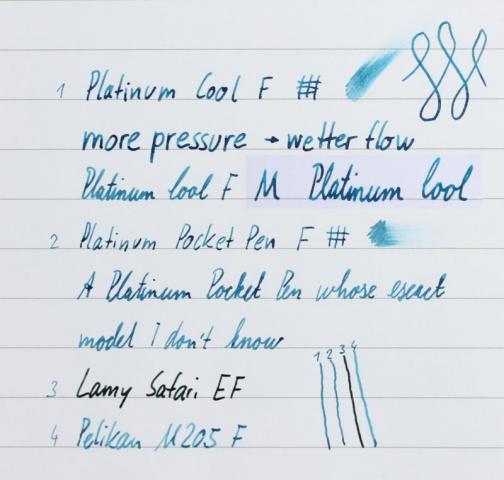 1 Platinum Cool F #
more pressure → wetter flow
Platinum Cool F M Platinum Cool
2 Platinum Pocket Pen F #
A Platinum Pocket Pen whose exact
model I don't know
1 2 3 4
3 Lamy Safari EF
4 Pelikan M205 F